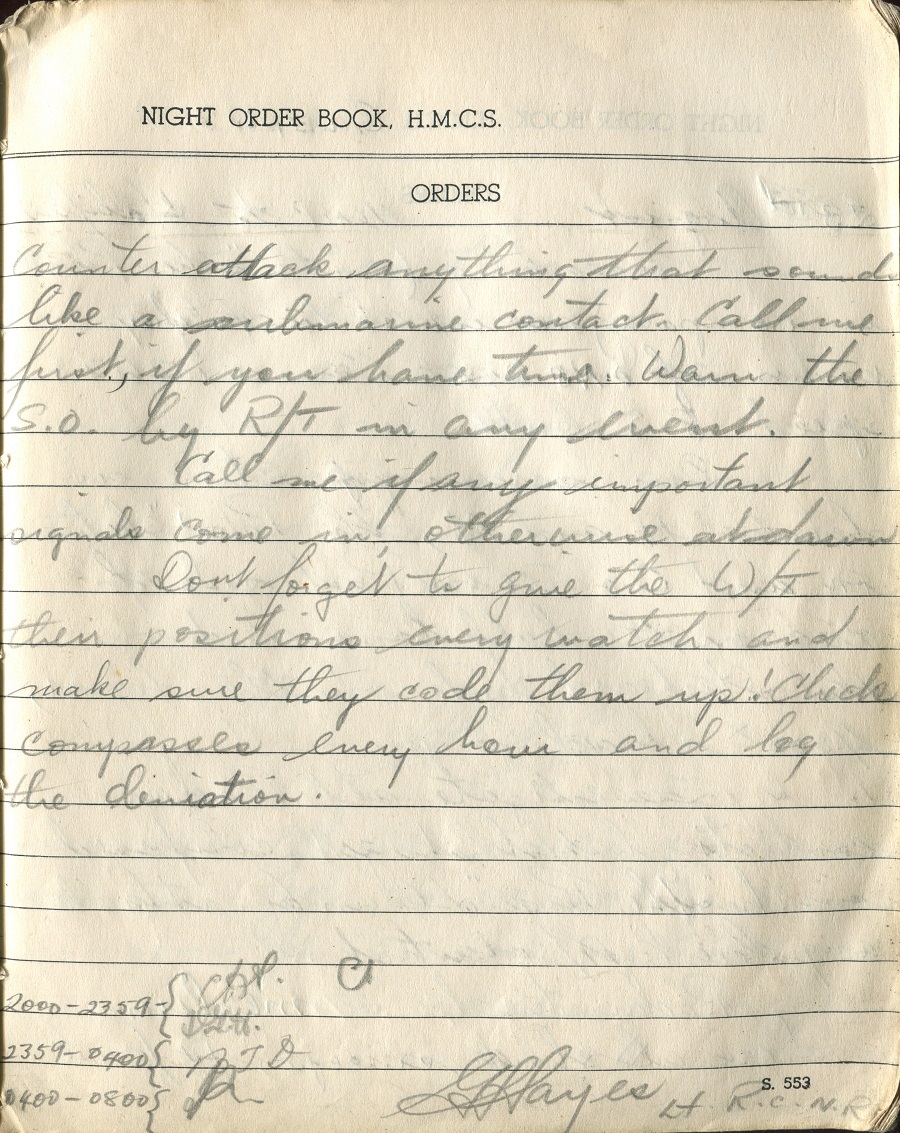 NIGHT ORDER BOOK, H.M.C.S.
ORDERS
Counter attack anything that sounds
like a submarine contact. Call me
first, if you have time. Warn the
S.O. by R/T in any event.
Call me if any important
signals come in, otherwise at dawn
Dont forget to give the W/T
their positions every watch and
make sure they code them up! Check
compasses every hour and log
the deviation.
2000-2359-{
2359-0400{
0400-0800{
Hayes Lt R.C.N.R
S. 553